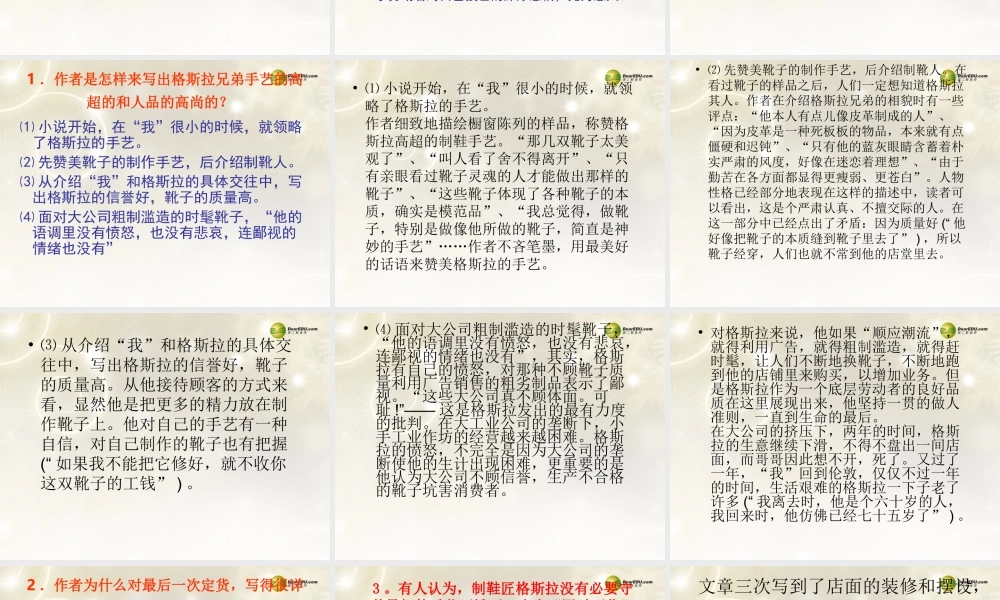 1．作者是怎样来写出格斯拉兄弟手艺的高
超的和人品的高尚的？
⑴ 小说开始，在“我”很小的时候，就领略
了格斯拉的手艺。
⑵ 先赞美靴子的制作手艺，后介绍制靴人。
⑶ 从介绍“我”和格斯拉的具体交往中，写
出格斯拉的信誉好，靴子的质量高。
⑷ 面对大公司粗制滥造的时髦靴子，“他的
语调里没有愤怒，也没有悲哀，连鄙视的
情绪也没有”
• ⑴ 小说开始，在“我”很小的时候，就领
略了格斯拉的手艺。
作者细致地描绘橱窗陈列的样品，称赞格
斯拉高超的制鞋手艺。“那几双靴子太美
观了”、“叫人看了舍不得离开”、“只
有亲眼看过靴子灵魂的人才能做出那样的
靴子”、“这些靴子体现了各种靴子的本
质，确实是模范品”、“我总觉得，做靴
子，特别是做像他所做的靴子，简直是神
妙的手艺”……作者不吝笔墨，用最美好
的话语来赞美格斯拉的手艺。
• ⑵ 先赞美靴子的制作手艺，后介绍制靴人。在
看过靴子的样品之后，人们一定想知道格斯拉
其人。作者在介绍格斯拉兄弟的相貌时有一些
评点：“他本人有点儿像皮革制成的人”、
“因为皮革是一种死板板的物品，本来就有点
僵硬和迟钝”、“只有他的蓝灰眼睛含蓄着朴
实严肃的风度，好像在迷恋着理想”、“由于
勤苦在各方面都显得更瘦弱、更苍白”。人物
性格已经部分地表现在这样的描述中，读者可
以看出，这是个严肃认真、不擅交际的人。在
这一部分中已经点出了矛盾：因为质量好 (“ 他
好像把靴子的本质缝到靴子里去了” ) ，所以
靴子经穿，人们也就不常到他的店堂里去。
• ⑶ 从介绍“我”和格斯拉的具体交
往中，写出格斯拉的信誉好，靴子
的质量高。从他接待顾客的方式来
看，显然他是把更多的精力放在制
作靴子上。他对自己的手艺有一种
自信，对自己制作的靴子也有把握
(“ 如果我不能把它修好，就不收你
这双靴子的工钱” ) 。
• ⑷ 面对大公司粗制滥造的时髦靴子，
“他的语调里没有愤怒，也没有悲哀，
连鄙视的情绪也没有”，其实，格斯
拉有自己的愤怒，对那种不顾靴子质
量利用广告销售的粗劣制品表示了鄙
视。“这些大公司真不顾体面。可
耻 !”—— 这是格斯拉发出的最有力度
的批判。在大工业公司的垄断下，小
手工业作坊的经营越来越困难。格斯
拉的愤怒，不完全是因为大公司的垄
断使他的生计出现困难，更重要的是
他认为大公司不顾信誉，生产不合格
的靴子坑害消费者。
• 对格斯拉来说，他如果“顺应潮流”，
就得利用广告，就得粗制滥造，就得赶
时髦，让人们不断地换靴子，不断地跑
到他的店铺里来购买，以增加业务。但
是格斯拉作为一个底层劳动者的良好品
质在这里展现出来，他坚持一贯的做人
准则，一直到生命的最后。
在大公司的挤压下，两年的时间，格斯
拉的生意继续下滑，不得不盘出一间店
面，而哥哥因此想不开，死了。又过了
一年，“我”回到伦敦，仅仅不过一年
的时间，生活艰难的格斯拉一下子老了
许多 (“ 我离去时，他是个六十岁的人，
我回来时，他仿佛已经七十五岁了” ) 。
2．作者为什么对最后一次定货，写得很详
3 。有人认为，制鞋匠格斯拉没有必要守
文章三次写到了店面的装修和摆设，